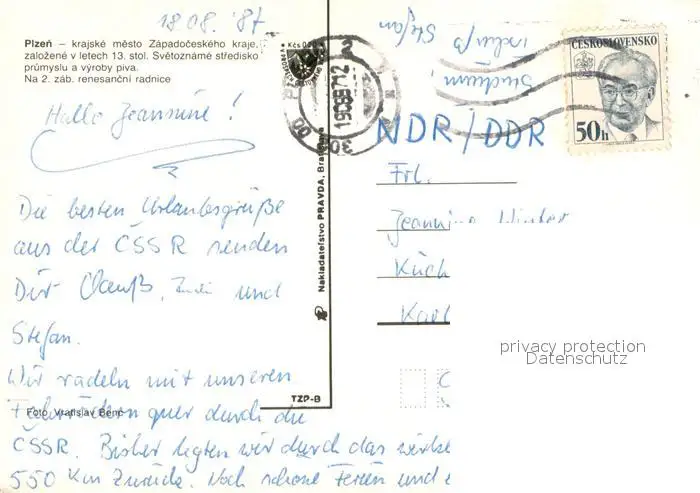 18.08. '87
Plzeň – krajské město Západočeského kraje,
založené v letech 13. stol. Světoznámé středisko
průmyslu a výroby piva.
Na 2. záb. renesanční radnice
Hallo Jeannine!
Die besten Urlaubsgrüße
aus der ČSSR senden
Dir Clauß, und
Stefan.
Wir radeln mit unseren
Fahrrädern quer durch die
ČSSR. Bisher legten wir durch das
550 km zurück. Noch schöne Ferien und
Foto Vratislav Beneč
Nakladateľstvo PRAVDA, Bratislava
TZP-B
Kčs 0,
Stefan
Studium!
ČESKOSLOVENSKO
50h
NDR/DDR
Frl.
Jeannine Winter
Küch
Karl
privacy protection
Datenschutz